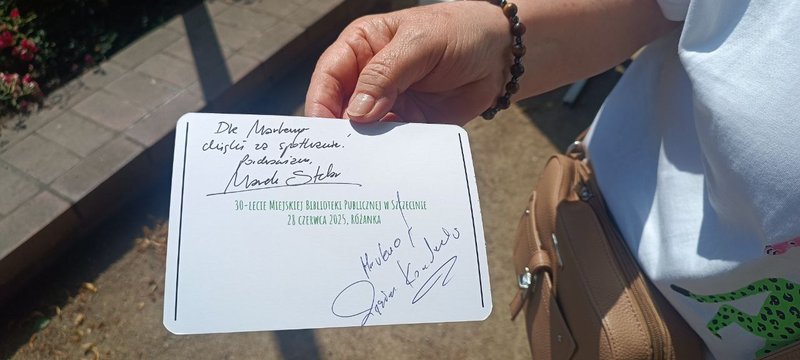 Dla Marleny
dzięki za spotkanie!
Pozdrawiam,
Marek Stelar
30-lecie Miejskiej Biblioteki Publicznej w Szczecinie
28 czerwca 2025, Różanka